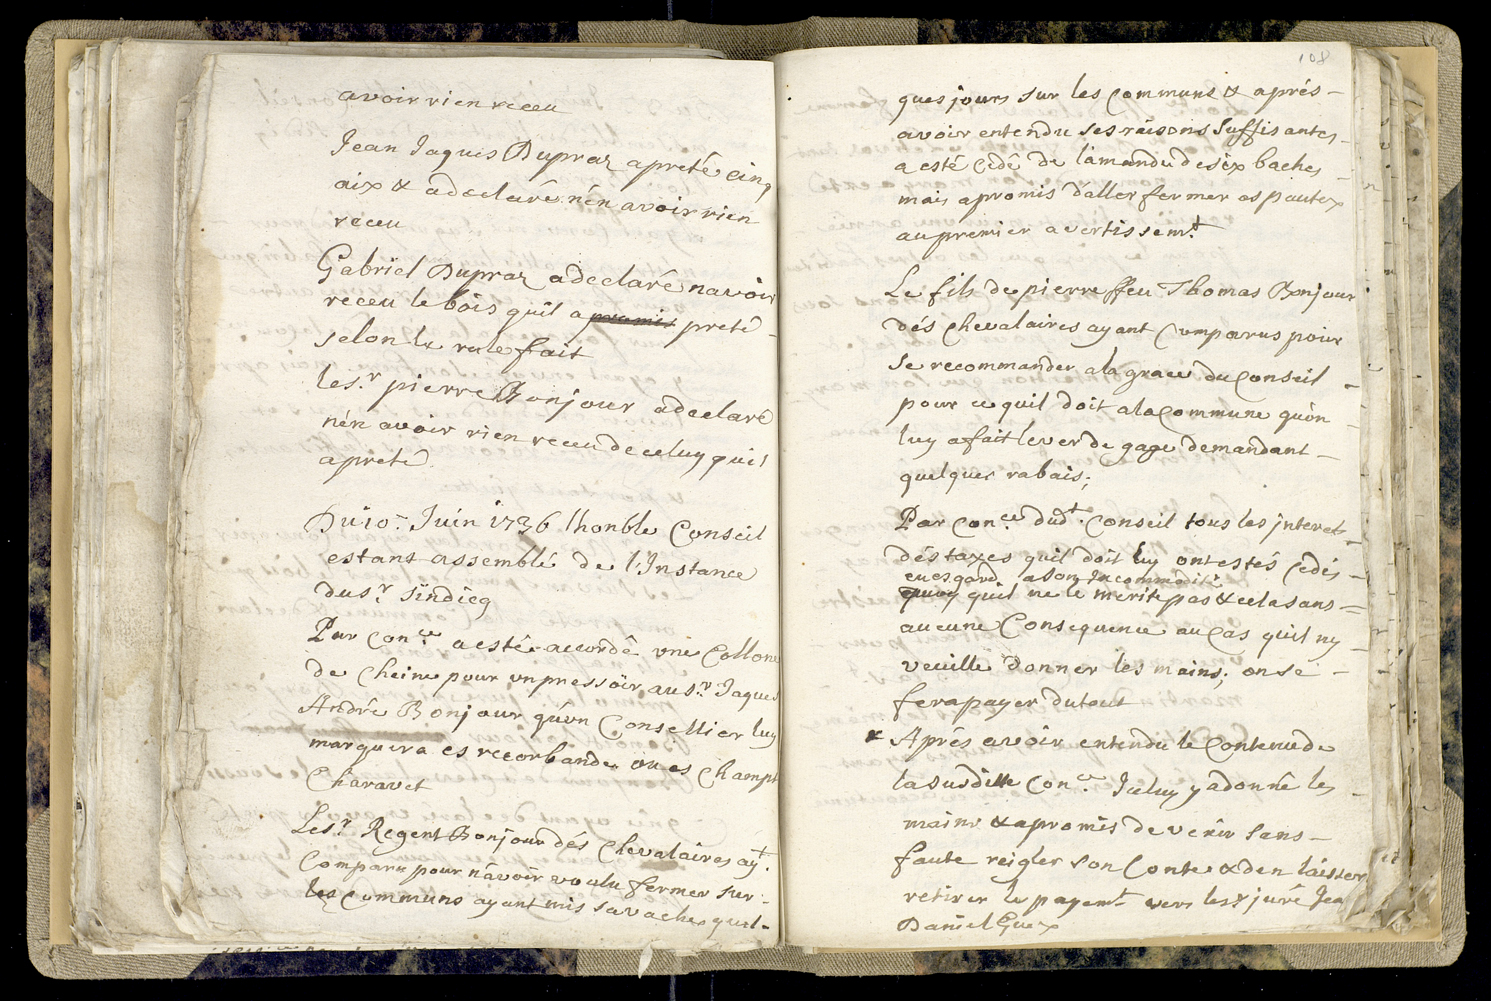 avoir rien receu
Jean Jaques Dupraz a preté cinq
aix & a declaré n'én avoir rien
receu
Gabriel Dupraz a declaré n avoir
receu le bois quil a promis preté
selon le role fait
le s.r pierre Bonjour a declaré
nén avoir rien receu de celuy quil
a preté
Du 10.e Juin 1736 lhonble Conseil
estans assemblé de l'Instance
du s.r sindicq
Par con.ce a esté accordé vne Collone
de cheine pour vn pressoir au s.r Jaques
André Bonjour qu'vn Conseillier luy
marquera es recorbande ou es champt
Charavet
Le s.r Regent Bonjour dés chevalaires ay.t
Comparu pour n'avoir voulu fermer sur
les communs ayant mis sa vache quel-
108
ques jours sur les communs & aprés
avoir entendu ses raisons suffisantes
a esté cedé de lamandu de six baches
mais a promis d'aller fermer es pautex
au premier avertissem.t
Le fils de pierre ffeu Thomas Bonjour
dés chevalaires ayant Comparus pour
se recommander a la grace du Conseil
pour ce quil doit a la Commune qu'on
luy a fait lever de gage demandant
quelques rabais;
Par con.ce dud.t Conseil tous les jnteret
dés taxes quil doit luy ont estés cedés
en esgard a son Incommodité
quoy quil ne le merite pas & cela sans
aucune Consequence au cas quil ny
veuille donner les mains; on se
fera payer du tout
Aprés avoir entendu le Contenu de
la susditte Con.ce Iceluy y a donné les
mains & a promis de venir sans
faute reigler son Conte & den laisser
retirer le payem.t vers le s.r juré Jea
Daniel Guex